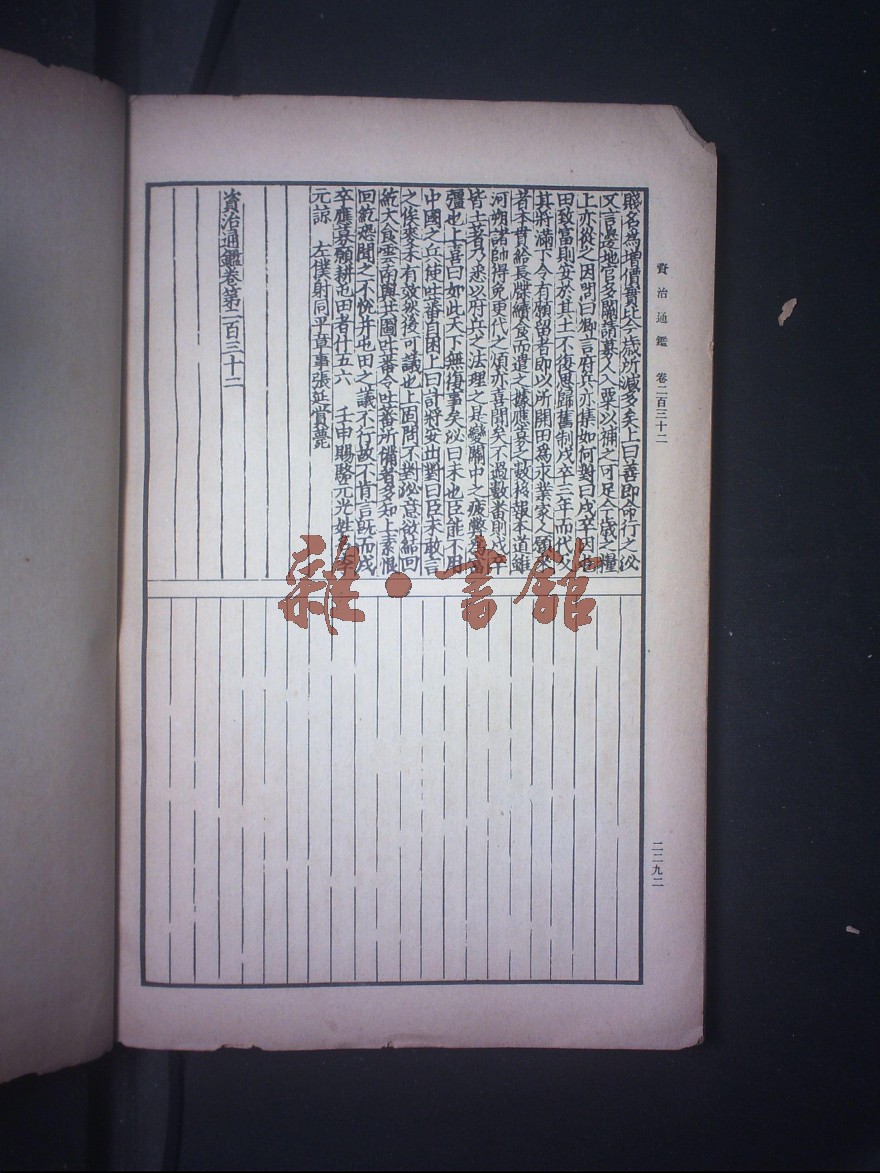 賤名為增價實比今歲所減多矣上曰善即命行之泌
又言邊地官多闕請募人入粟以補之可足今歲之糧
上亦從之因問曰卿言府兵亦集如何對曰戍卒因屯
田致富則安於其土不復思歸舊制戍卒三年而代及
其將滿下令有願留者即以所開田為永業家人願來
者本貫給長牒續食而遣之據應募之數移報本道雖
河朔諸帥得免更代之煩亦喜聞矣不過數番則戍卒
皆土著乃悉以府兵之法理之是變關中之疲弊為富
彊也上喜曰如此天下無復事矣泌曰未也臣能不用
中國之兵使吐蕃自困上曰計將安出對曰臣未敢言
之俟麥禾有效然後可議也上固問不對泌意欲結回
紇大食雲南與共圖吐蕃令吐蕃所備者多知上素恨
回紇恐聞之不悅并屯田之議不行故不肯言既而戍
卒應募願耕屯田者什五六 壬申賜駱元光姓名李
元諒 左僕射同平章事張延賞薨
資治通鑑卷第二百三十二
資治通鑑 卷二百三十二
二二九二
雜·書館